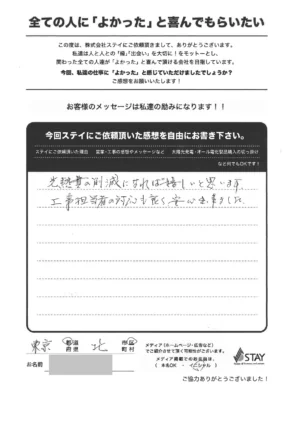 全ての人に「よかった」と喜んでもらいたい
この度は、株式会社ステイにご依頼頂きまして、ありがとうございます。
私達は人と人との「縁」「出会い」を大切に！をモットーとし、
関わった全ての人達が「よかった」と喜んで頂ける会社を目指しています。
今回、私達の仕事に「よかった」と感じていただけましたでしょうか？
ご感想をお願いいたします！
お客様のメッセージは私達の励みになります！！
今回ステイにご依頼頂いた感想を自由にお書き下さい。
ステイにご依頼頂いた理由 営業・工事の感想やメッセージなど 太陽光発電・オール電化製品購入の切っ掛け
など何でもOKです！
光熱費の削減になれば嬉しいと思います。
工事担当者の対応も良く安心出来ました。
東京 都道府県 北 市区町村
お名前
メディア（ホームページ・広告など）
でご紹介させて頂く可能性がございます。
メディア掲載でのお名前は、
（ 本名OK ・ イニシャル ）
STAY
ご協力ありがとうございました！